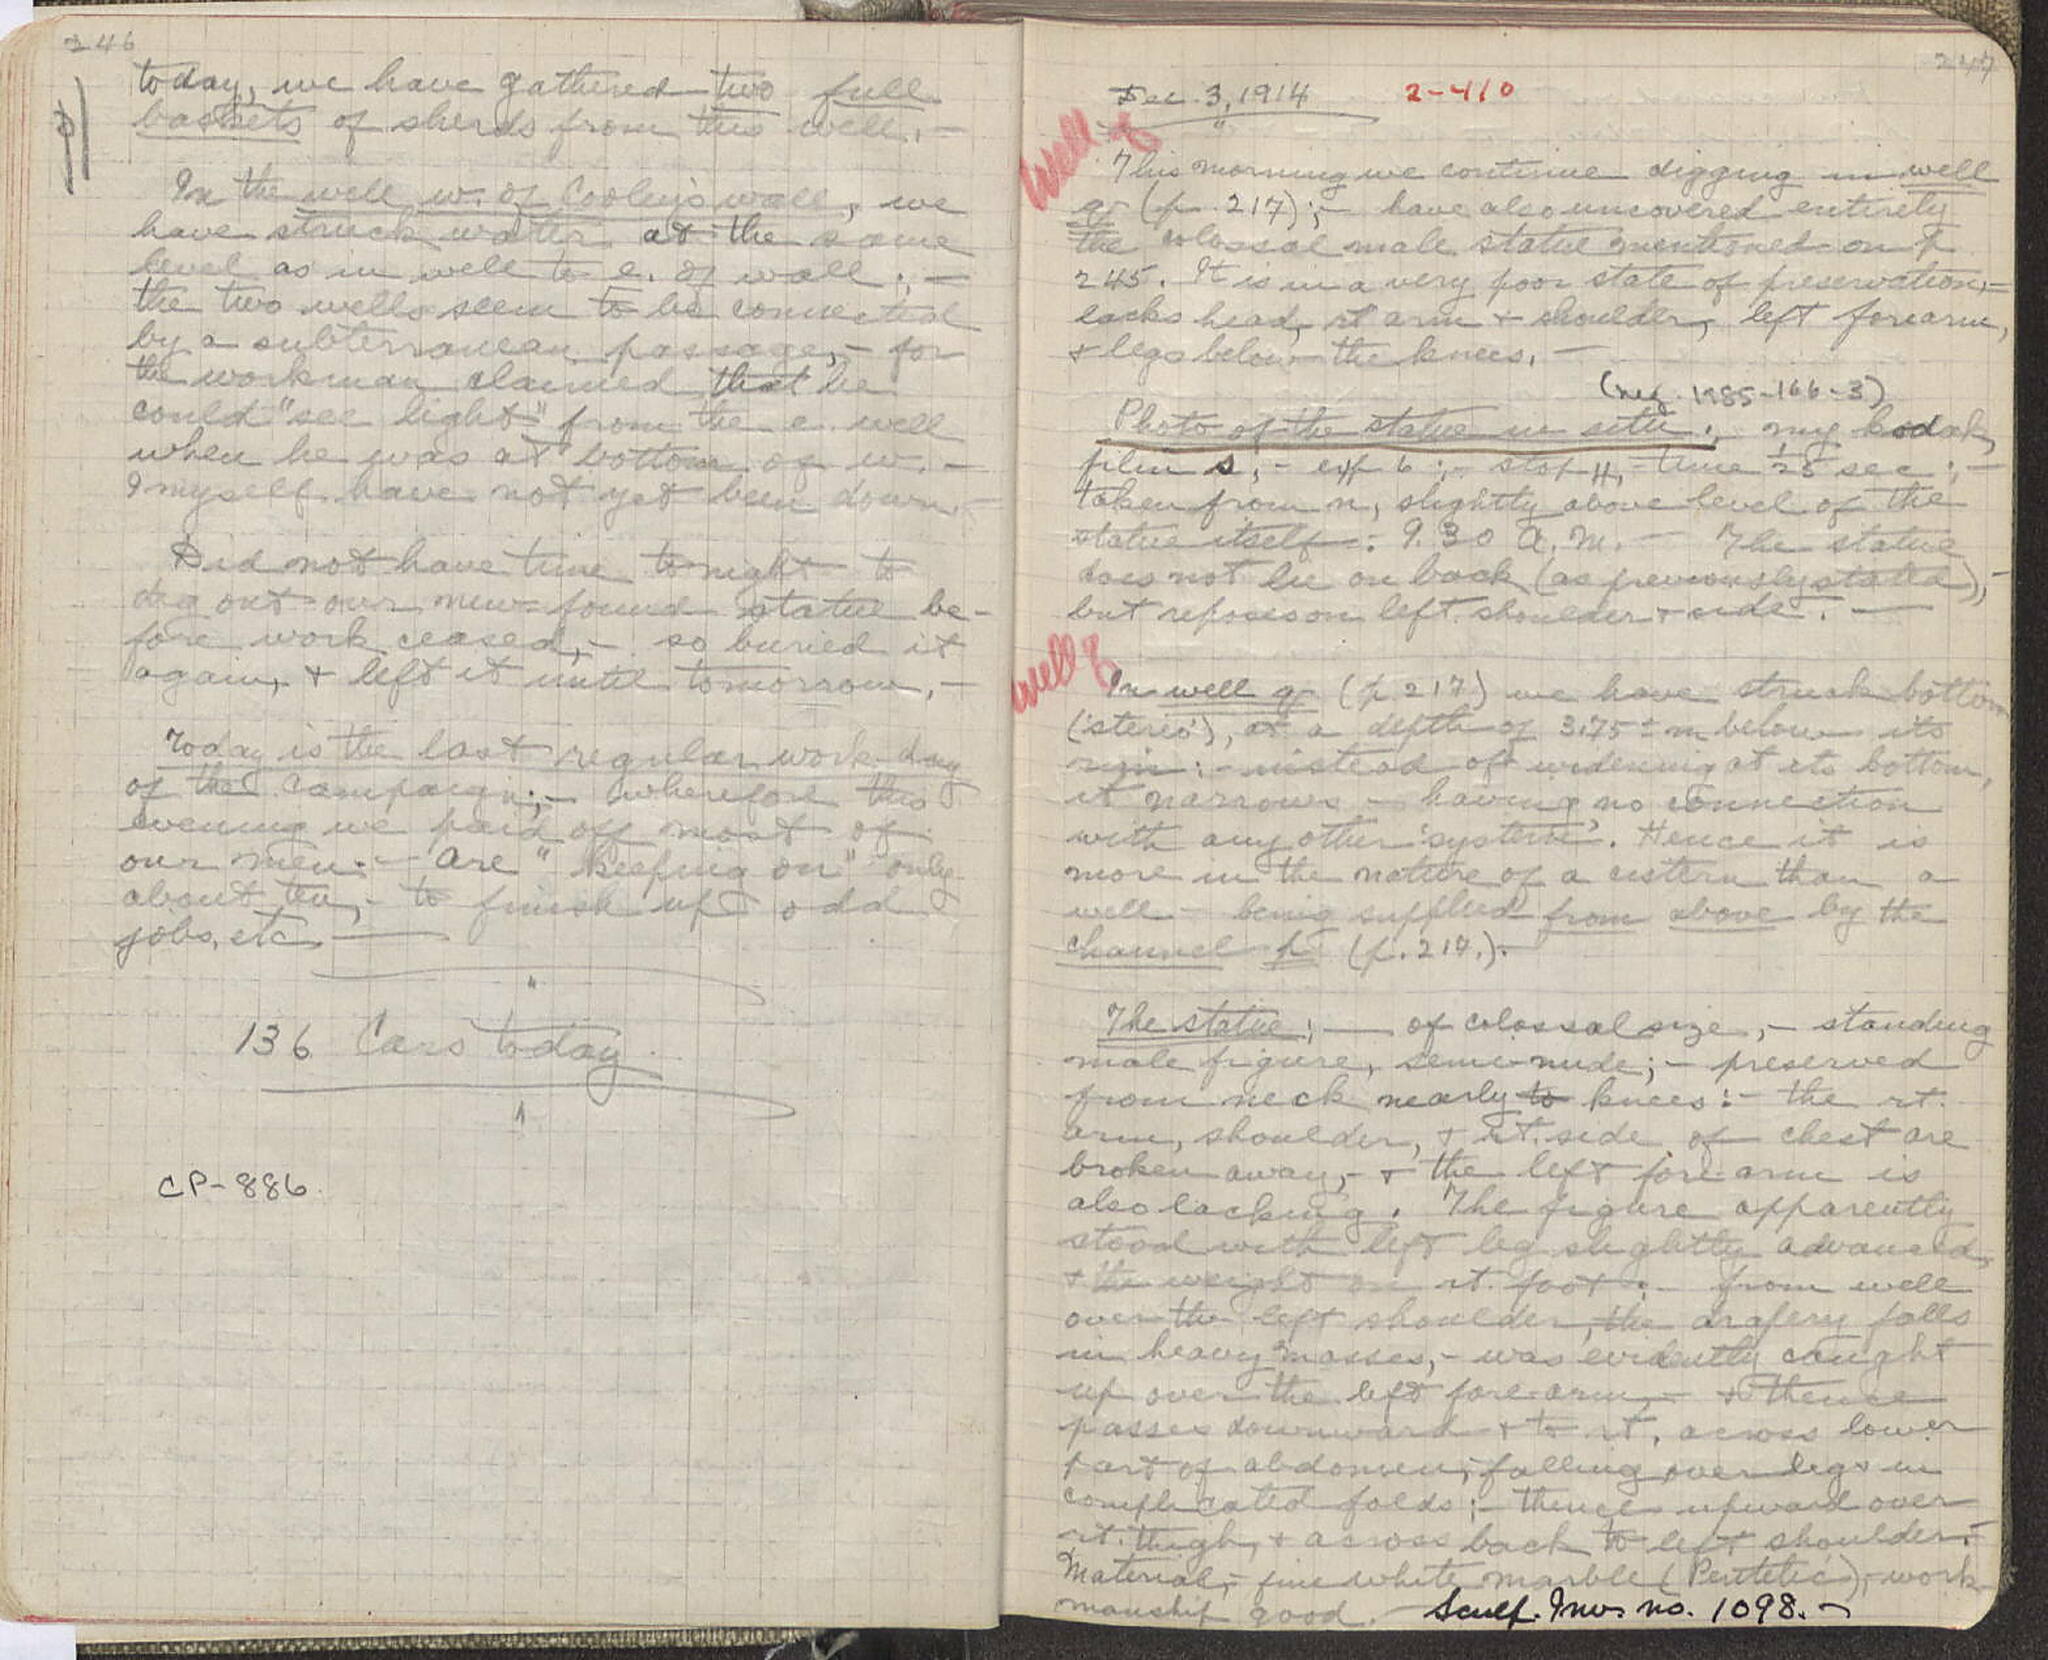 246
today, we have gathered two full
baskets of sherds from this well. —
In the well w. of Cooley's wall, we
have struck water at the same
level as in well to e. of wall ; —
the two wells seem to be connected
by a subterranean passage, — for
the workman claimed that he
could "see light" from the e. well
when he was at bottom of w. —
I myself have not yet been down. —
Did not have time tonight to
dig out our new-found statue be-
fore work ceased, — so buried it
again, + left it until tomorrow. —
Today is the last regular work-day
of the campaign ; — wherefore this
evening we paid off most of
our men : — are "keeping on" only
about ten, — to finish up odd
jobs, etc. —
136 Cars today
CP-886.
247
Dec. 3, 1914 2-410
Well q
This morning we continue digging in well
q (p. 217) ; — have also uncovered entirely
the colossal male statue mentioned on p.
245. It is in a very poor state of preservation, —
lacks head, rt arm + shoulder, left forearm,
+ legs below the knees. —
(neg. 1985-166-3)
Photo of the statue in situ : my kodak,
film s, — exp 6 ; — stop 11, — time 1/25 sec ; —
taken from n, slightly above level of the
statue itself : 9.30 A.M. — The statue
does not lie on back (as previously stated), —
but reposes on left shoulder + side. —
well q
In well q (p. 217) we have struck bottom
('stereo'), at a depth of 3.75 ± m below its
rim : — instead of widening at its bottom,
it narrows — having no connection
with any other 'system'. Hence it is
more in the nature of a cistern than a
well — being supplied from above by the
channel p (p. 217.). —
The statue ; — of colossal size, — standing
male figure, semi-nude ; — preserved
from neck nearly to knees : — the rt.
arm, shoulder, + rt. side of chest are
broken away, — + the left forearm is
also lacking. The figure apparently
stood with left leg slightly advanced,
+ the weight on rt. foot ; — from well
over the left shoulder, the drapery falls
in heavy masses, — was evidently caught
up over the left fore-arm, — + thence
passes downward + to rt. across lower
part of abdomen, falling over legs in
complicated folds ; — thence upward over
rt. thigh, + across back to left shoulder. —
Material, — fine white marble (Pentelic), — work-
manship good. — Sculp. Inv. no. 1098. —